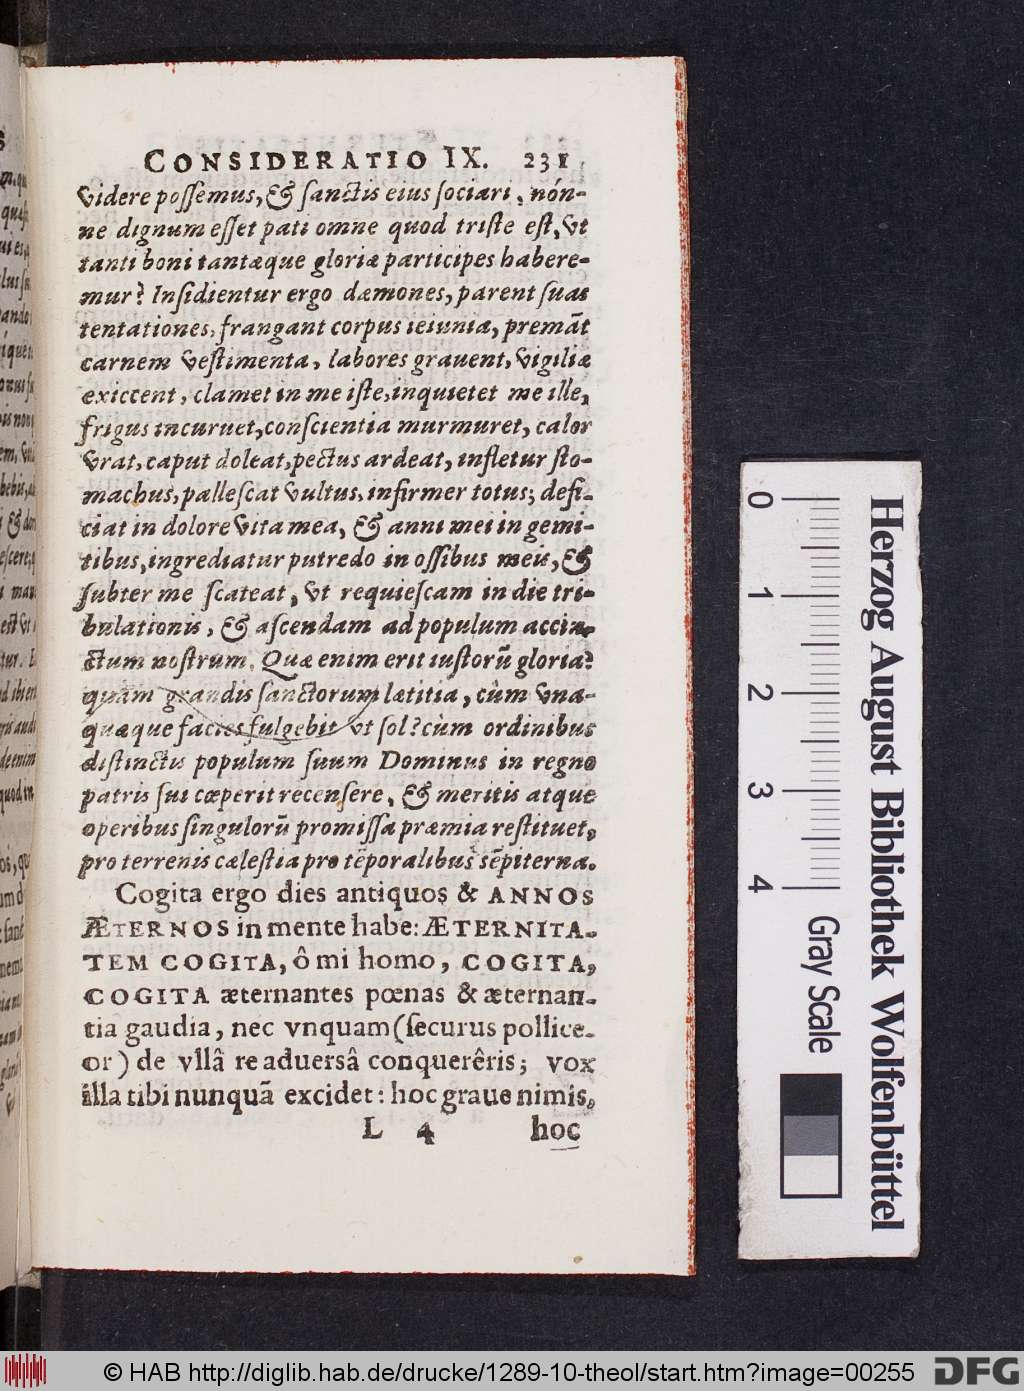 CONSIDERATIO IX. 231
videre possemus, & sanctis eius sociari, nón-
ne dignum esset pati omne quod triste est, vt
tanti boni tantæque gloriæ participes habere-
mur? Insidientur ergo dæmones, parent suas
tentationes, frangant corpus ieiunia, premãt
carnem vestimenta, labores grauent, vigiliæ
exiccent, clamet in me iste, inquietet me ille,
frigus incuruet, conscientia murmuret, calor
vrat, caput doleat, pectus ardeat, infletur sto-
machus, pallescat vultus, infirmer totus; defi-
ciat in dolore vita mea, & anni mei in gemi-
tibus, ingrediatur putredo in ossibus meis, &
subter me scateat, vt requiescam in die tri-
bulationis, & ascendam ad populum accin-
ctum nostrum. Quæ enim erit iustorũ gloria?
quàm grandis sanctorum lætitia, cùm vna-
quæque facies fulgebit vt sol? cùm ordinibus
distinctis populum suum Dominus in regno
patris sui cœperit recensere, & meritis atque
operibus singulorũ promissa præmia restituet,
pro terrenis cælestia pro tẽporalibus sẽpiterna.
Cogita ergo dies antiquos & ANNOS
ÆTERNOS in mente habe: ÆTERNITA-
TEM COGITA, ô mi homo, COGITA,
COGITA æternantes pœnas & æternan-
tia gaudia, nec vnquam (securus pollice-
or) de vllâ re aduersâ conquerêris; vox
illa tibi nunquã excidet: hoc graue nimis,
L 4 hoc
0 1 2 3 4
Gray Scale
Herzog August Bibliothek Wolfenbüttel
© HAB http://diglib.hab.de/drucke/1289-10-theol/start.htm?image=00255
DFG